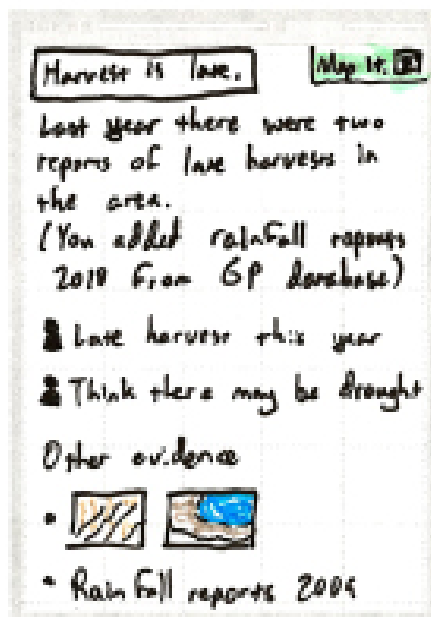 Harvest is late.
Map it.
Last year there were two
reports of late harvests in
the area.
(You added rainfall reports
2018 from GP database)
Late harvest this year
Think there may be drought
Other evidence
Rainfall reports 2009